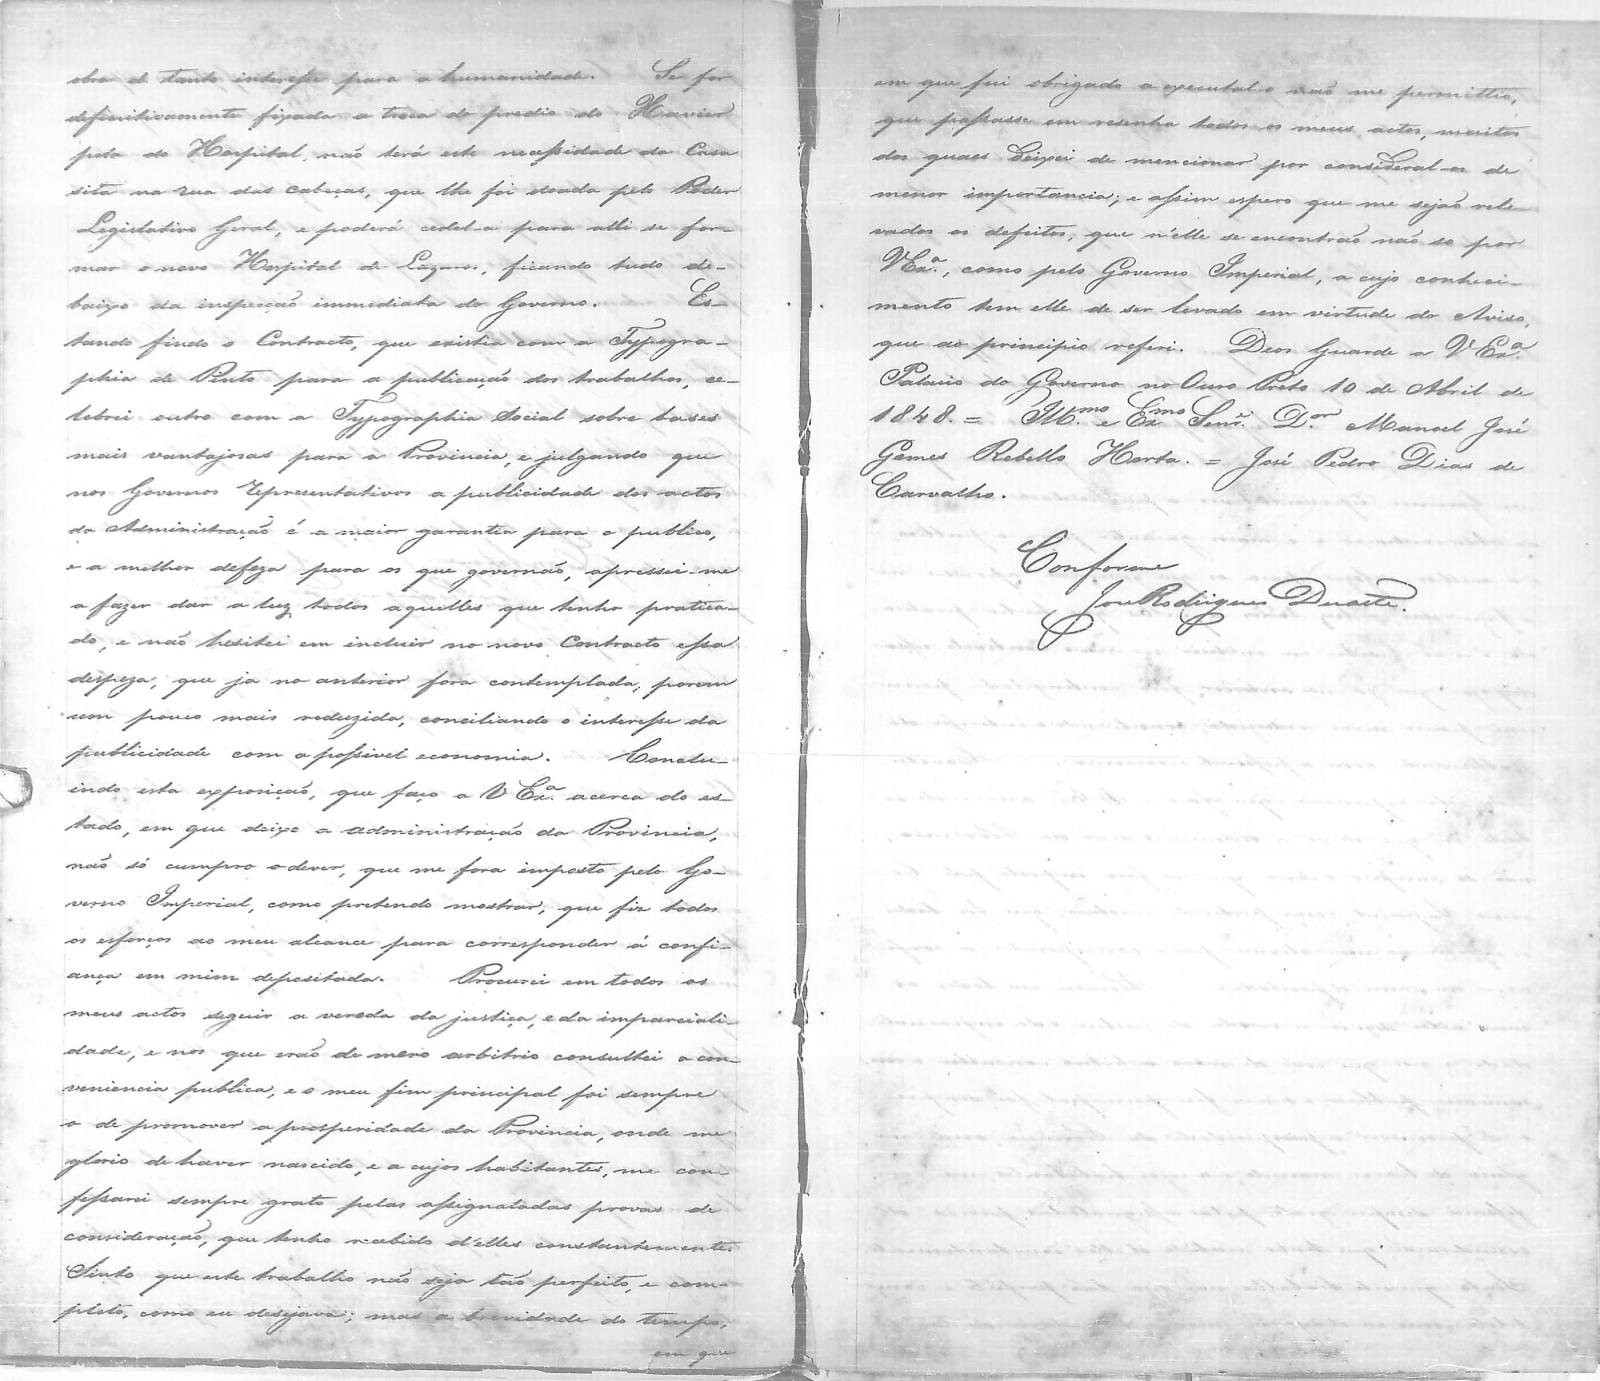 obra de tanto interesse para a humanidade. Se for
definitivamente fixada a troca do predio do Xavier
pelo do Hospital, não terá este necessidade da Casa
sita na rua das cabeças, que lhe foi doada pelo Poder
Legislativo Geral, e poderá cedel-a para alli se for-
mar o novo Hospital de Lazaros, ficando tudo de-
baixo da inspecção immediata do Governo. Es-
tando findo o Contracto, que existia com a Typogra-
phia de Pinto para a publicação dos trabalhos, ce-
lebrei outro com a Typographia Social sobre bases
mais vantajosas para a Provincia, e julgando que
nos Governos representativos a publicidade dos actos
da Administração é a maior garantia para o publico,
e a melhor defeza para os que governão, apressei-me
a fazer dar a luz todos aquelles que tenho pratica-
do, e não hesitei em incluir no novo Contracto essa
despeza, que ja no anterior fora contemplada, porem
um pouco mais reduzida, conciliando o interesse da
publicidade com a possivel economia. Conclu-
indo esta exposição, que faço a V Exª. acerca do es-
tado, em que deixo a administração da Provincia,
não só cumpro o dever, que me fora imposto pelo Go-
verno Imperial, como pretendo mostrar, que fiz todos
os esforços ao meu alcance para corresponder á confi-
ança em mim depositada. Procurei em todos os
meus actos seguir a vereda da justiça, e da imparciali-
dade, e nos que erão de mero arbitrio consultei a con-
veniencia publica, e o meu fim principal foi sempre
o de promover a prosperidade da Provincia, onde me
glorio de haver nascido, e a cujos habitantes, me con-
fessarei sempre grato pelas assignaladas provas de
consideração, que tenho recebido d'elles constantemente.
Sinto que este trabalho não seja tão perfeito, e com-
pleto, como eu desejava; mas a brevidade do tempo,
em que
em que fui obrigado a executal-o não me permittio,
que passasse em resenha todos os meus actos, muitos
dos quaes deixei de mencionar por consideral-os de
menor importancia; e assim espero que me sejão rele-
vados os defeitos, que n'elle se encontrão não só por
VExª., como pelo Governo Imperial, a cujo conheci-
mento tem elle de ser levado em virtude do Aviso,
que ao principio referi. Deos Guarde a V Exª.
Palacio do Governo no Ouro Preto 10 de Abril de
1848. = Illmo. e Exmo Senr. Dor. Manoel José
Gomes Rebello Horta. = José Pedro Dias de
Carvalho.
Conforme
José Rodrigues Duarte.